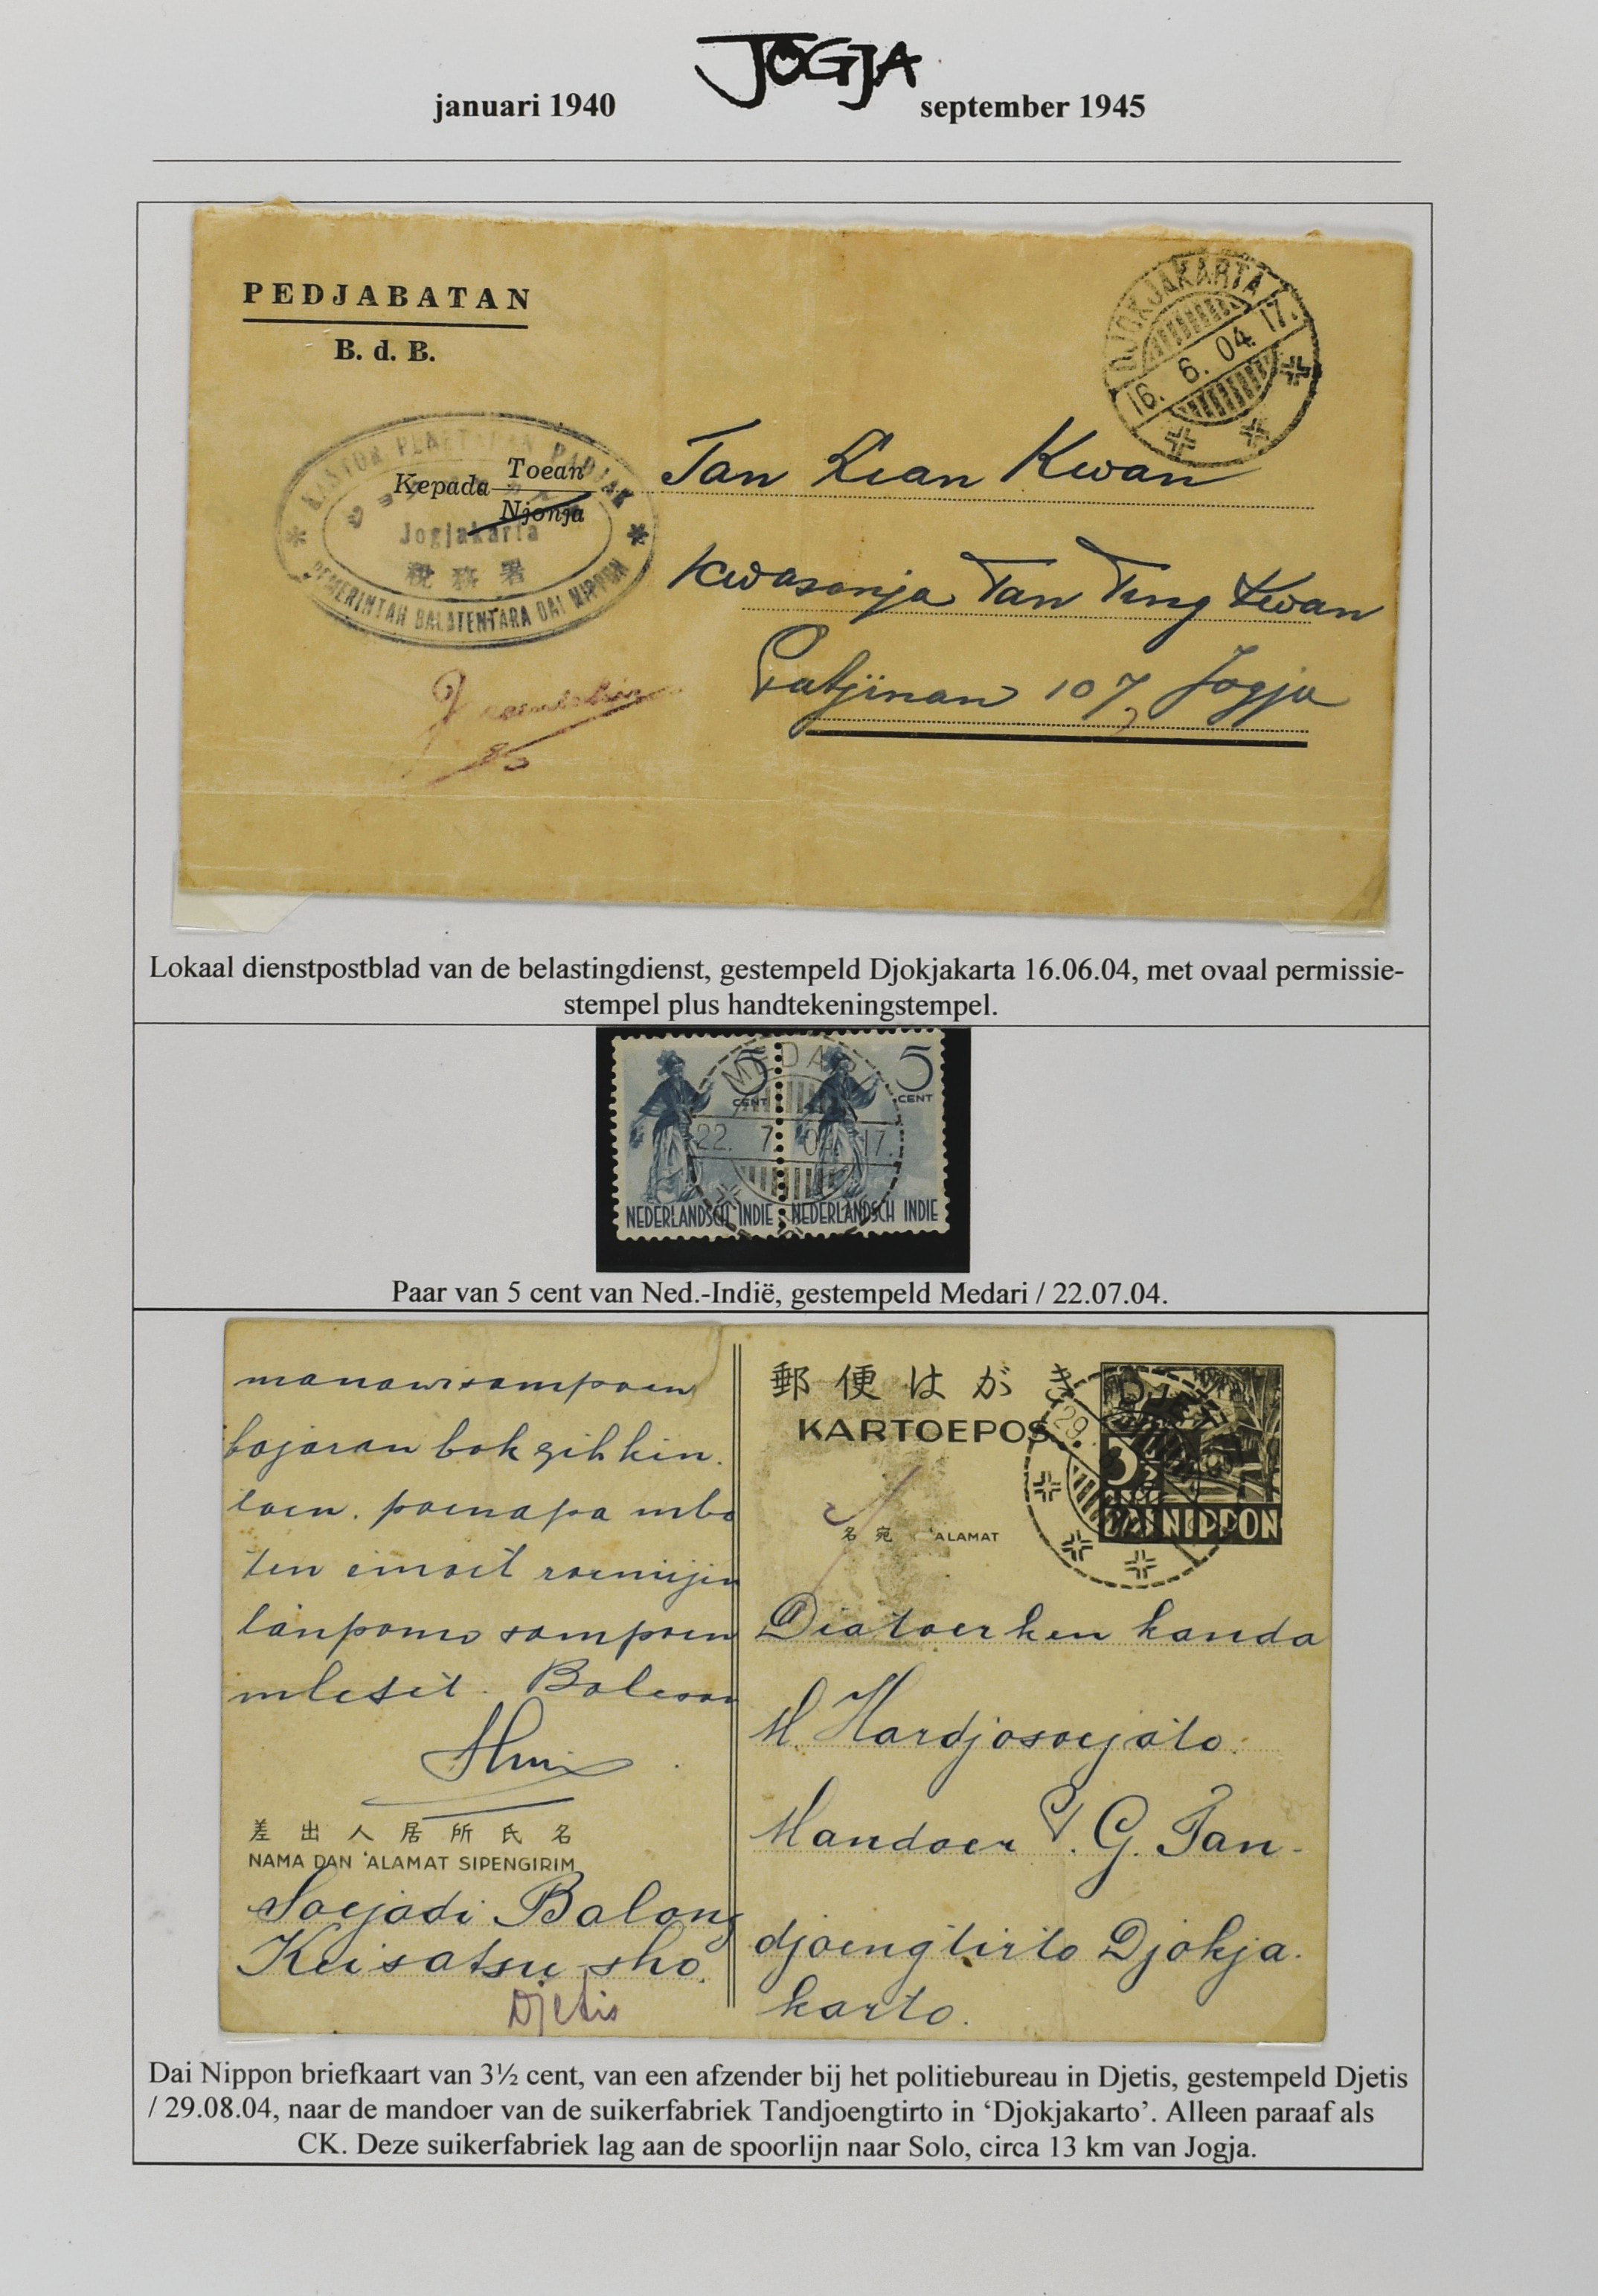 JOGJA
januari 1940 september 1945
PEDJABATAN
B. d. B.
DJOKJAKARTA
16. 6. 04. 17.
KANTOR PENETAPAN PADJAK
Jogjakarta
税務署
PEMERINTAH BALATENTARA DAI NIPPON
Kepada Toean
Njonja
Tan Lian Kwan
Kwasanja Tan Ting Kwan
Patjinan 107 Jogja
Lokaal dienstpostblad van de belastingdienst, gestempeld Djokjakarta 16.06.04, met ovaal permissie-
stempel plus handtekeningstempel.
5 CENT
5 CENT
MEDARI
22. 7. 04. 17.
NEDERLANDSCH INDIE
NEDERLANDSCH INDIE
Paar van 5 cent van Ned.-Indië, gestempeld Medari / 22.07.04.
manawi sampoen
bajaran bok gih kin.
toen. poenapa mbo
ten
sampoen
郵便はがき
KARTOEPOS
DJETIS
29.
3½
CENT
DAI NIPPON
名宛 'ALAMAT
Diatoerken kanda
M. Hardjosoejoto.
Mandoer S. G. Tan-
djoengtirto Djokja-
karto.
差出人居所氏名
NAMA DAN 'ALAMAT SIPENGIRIM
Soejadi Balong
Keisatsu-sho.
Djetis
Dai Nippon briefkaart van 3½ cent, van een afzender bij het politiebureau in Djetis, gestempeld Djetis
/ 29.08.04, naar de mandoer van de suikerfabriek Tandjoengtirto in ‘Djokjakarto’. Alleen paraaf als
CK. Deze suikerfabriek lag aan de spoorlijn naar Solo, circa 13 km van Jogja.